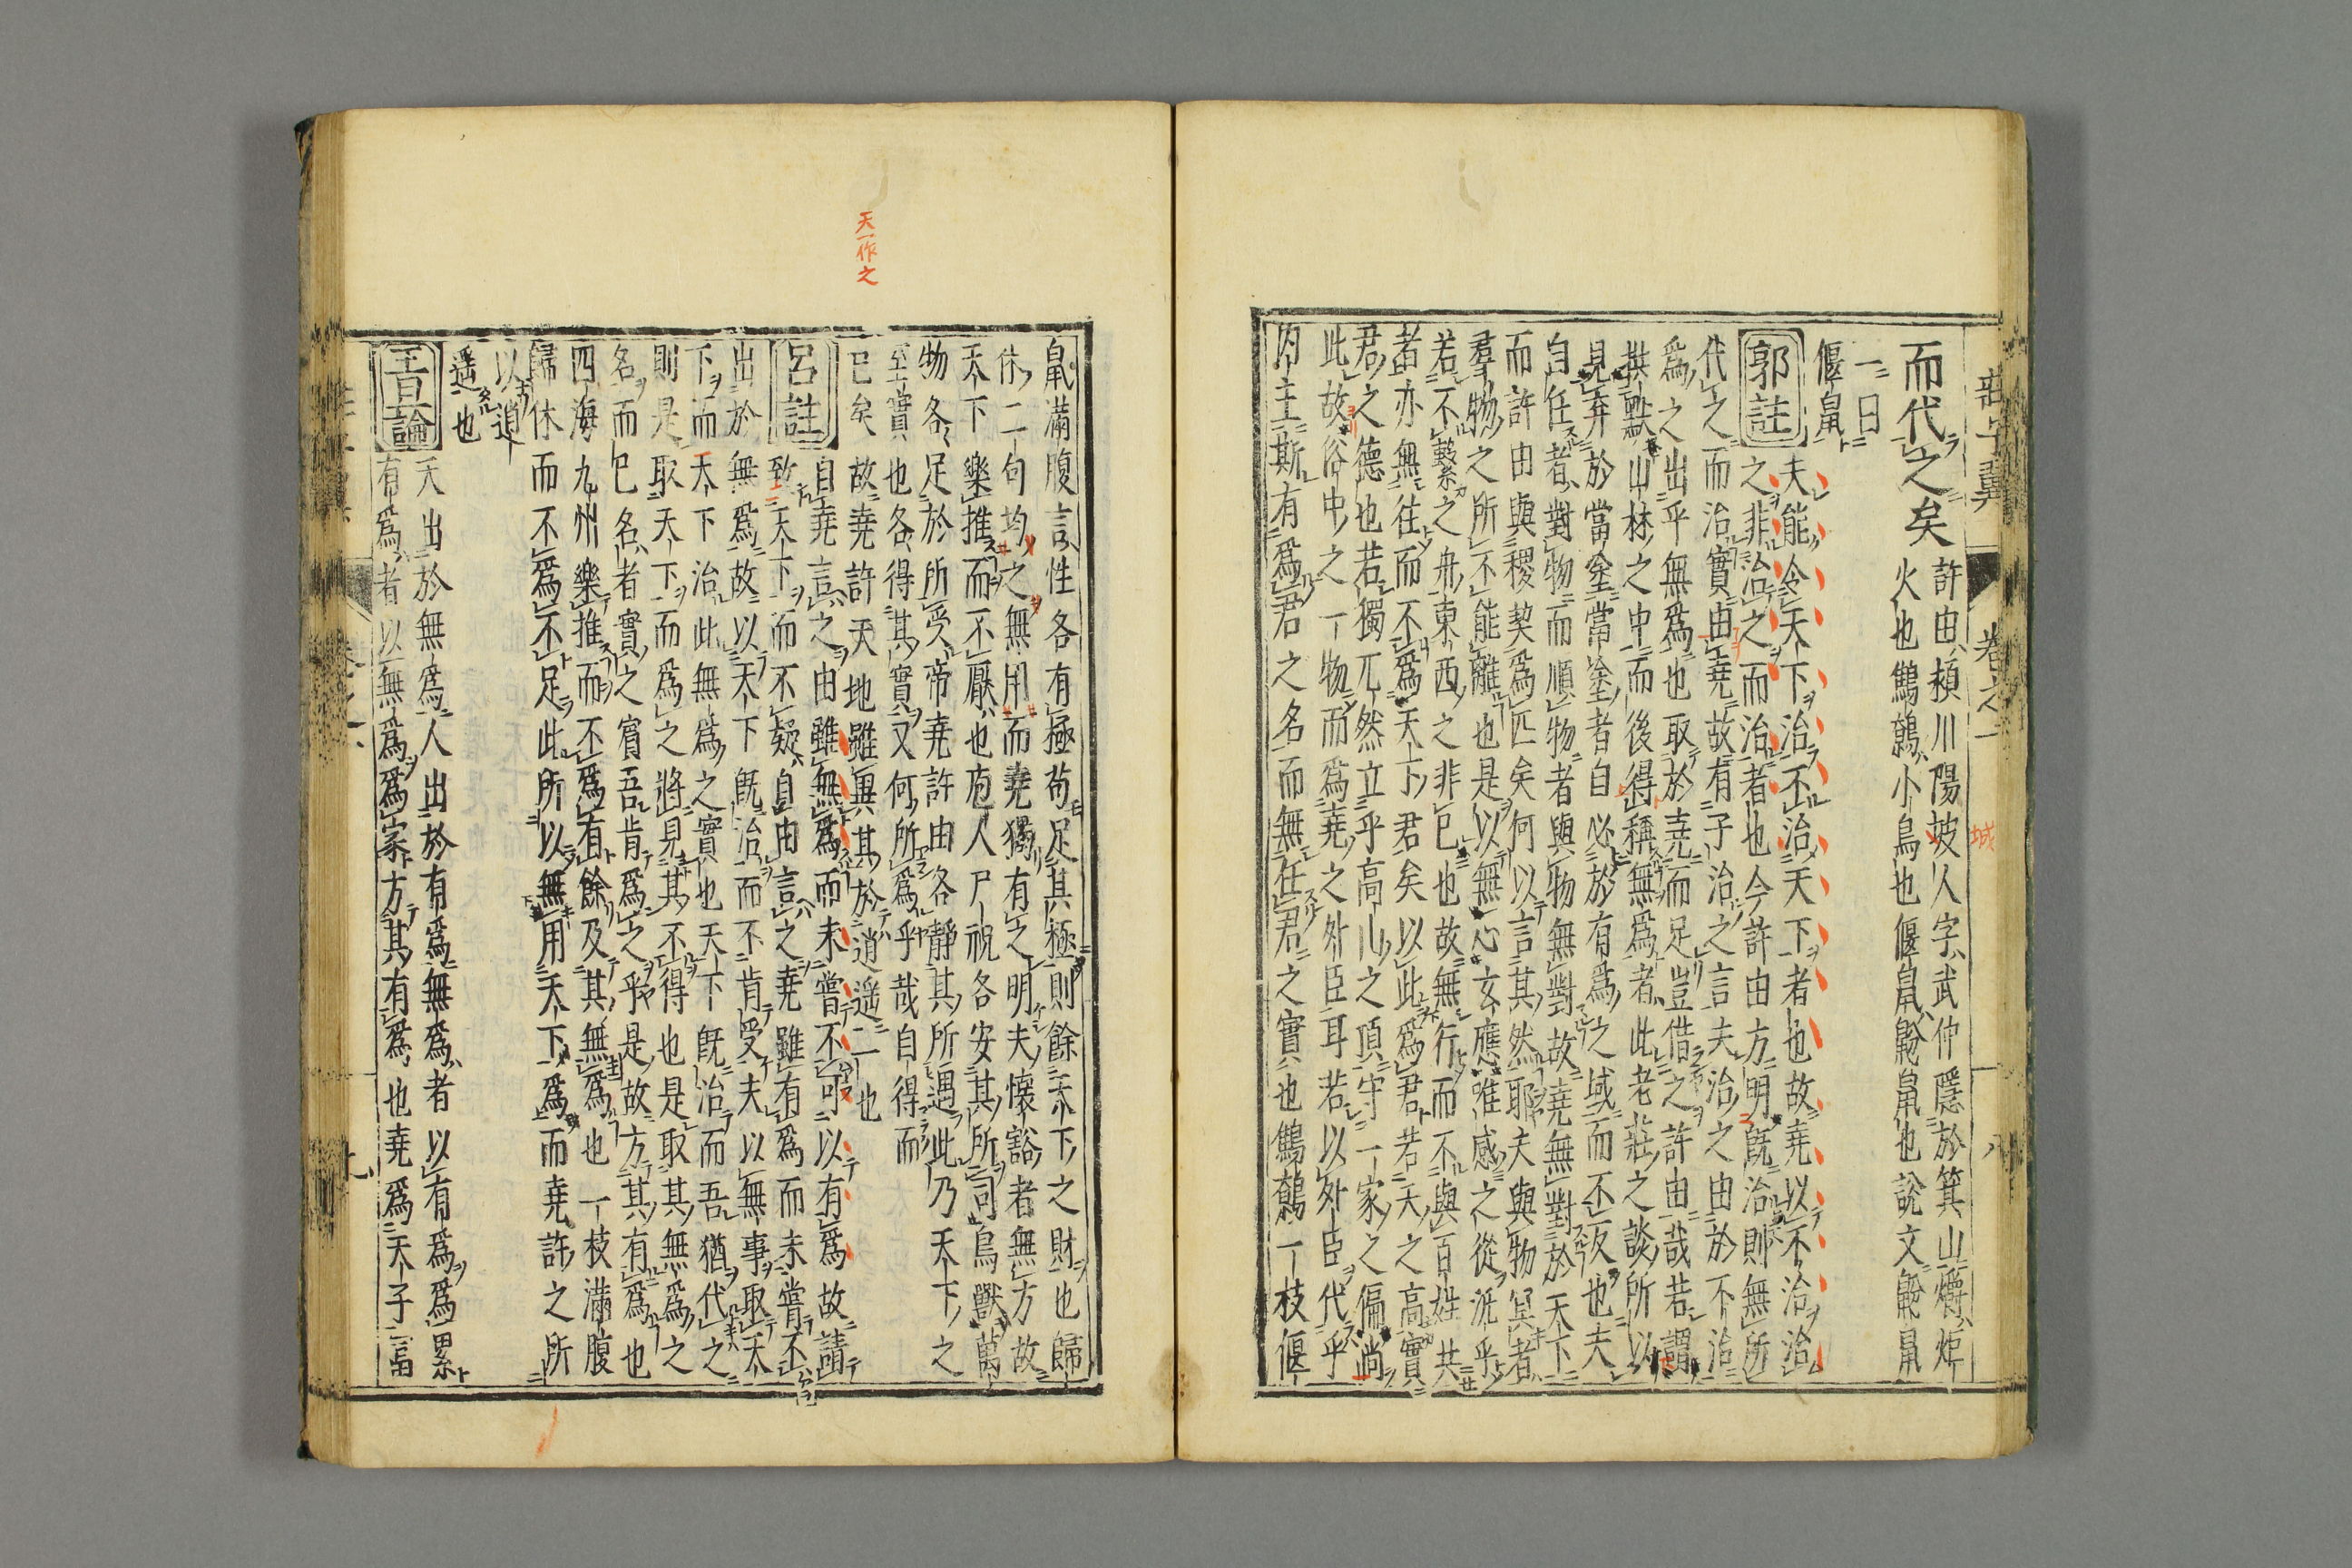 莊子翼 卷之一 八
城
而代之矣 許由頴川陽城人字武仲隱於箕山爝炬
火也鷦鷯小鳥也偃鼠鼢鼠也說文鼢鼠
一曰
偃鼠
郭註
夫能令天下治不治天下者也故堯以不治治
之非治之而治者也今許由方明既治則無所
代之而治實由堯故有子治之言夫治之由於不治
爲之出乎無爲也取於堯而足豈借之許由哉若謂
拱默山林之中而後得稱無爲者此老莊之談所以
見弃於當塗當塗者自必於有爲之域而不反也夫
自任者對物而順物者與物無對故堯無對於天下
而許由與稷契爲匹矣何以言其然耶夫與物冥者
羣物之所不能離也是以無心玄應唯感之從汎乎
若不繫之舟東西之非已也故無行而不與百姓共
者亦無往而不爲天下君矣以此爲君若天之高實
君之德也若獨兀然立乎高山之頂守一家之偏尚
此故俗中之一物而爲堯之外臣耳若以外臣代乎
内主斯有爲君之名而無任君之實也鷦鷯一枝偃
鼠滿腹言性各有極苟足其極則餘天下之財也歸
休二句均之無用而堯獨有之明夫懷豁者無方故
天下樂推而不厭也庖人尸祝各安其所司鳥獸萬
物各足於所受帝堯許由各靜其所遇此乃天下之
至實也各得其實又何所爲乎哉自得而
已矣故堯許天地雖異其於逍遥一也
天一作之
呂註
自堯言之由雖無爲而未嘗不可以有爲故請
致天下而不疑自由言之堯雖有爲而未嘗不
出於無爲故以天下既治而不肯受夫以無事取天
下而天下治此無爲之實也天下既治而吾猶代之
則是取天下而爲之將見其不得也是取其無爲之
名而已名者實之賓吾肯爲之乎是故方其有爲也
四海九州樂推而不爲有餘及其無爲也一枝滿腹
歸休而不爲不足此所以無用天下爲而堯許之所
以逍
遥也
䇾論
天出於無爲人出於有爲無爲者以有爲爲累
有爲者以無爲爲家方其有爲也堯爲天子富